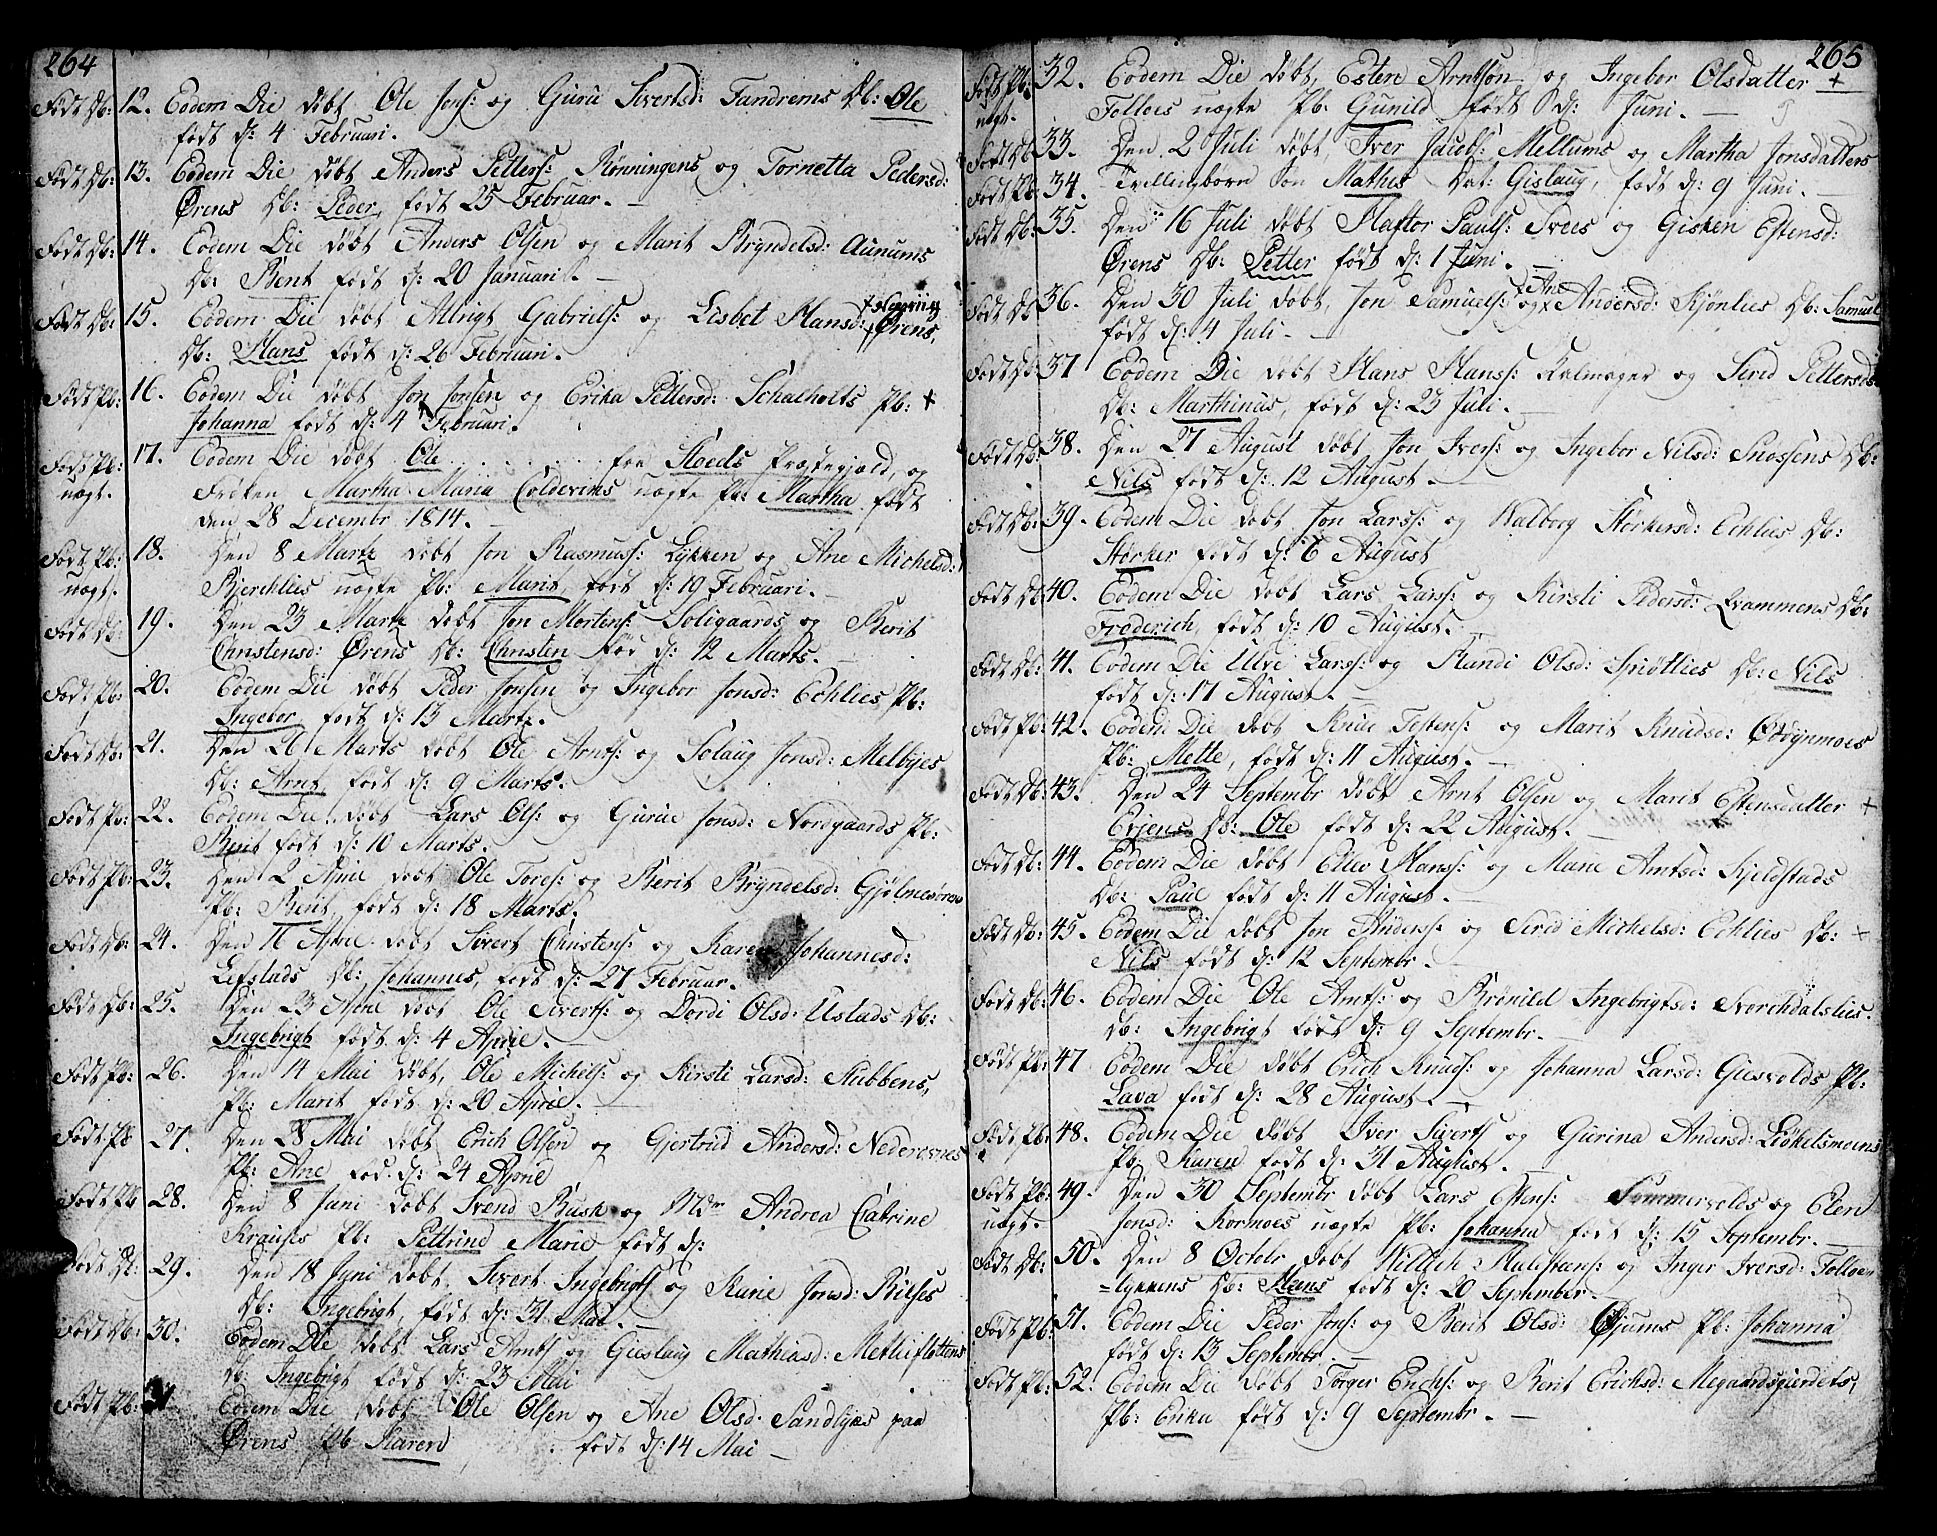 264
Født Db: 12. Eodem Die døbt Ole Jons: og Guru Sivertsd: Tandrems Db: Ole
født d: 4 Februari.
Født Db: 13. Eodem Die døbt Anders Petters: Rønningens og Tornetta Pedersd:
Ørens Db: Peder, født 25 Februar. —
Født Db: 14. Eodem Die døbt Anders Olsen og Marit Bryndelsd: Aunums
Db: Bent født d: 20 Januari. —
Født Db 15. Eodem Die døbt Allrigt Gabriels: og Lisbet Hansd: Ørens,
Db: Hans født d: 26 Februari.
Født Pb: 16. Eodem Die døbt Jon Jonsen og Erika Pettersd: Schalholts Pb: +
Johanna født d: 4 Februari.
Født Pb: 17. Eodem Die døbt Ole fra Støeds Præstegjæld, og
uægt. Frøken Martha Maria Colderims uægte Pb: Martha født
den 28 Decembr 1814. —
Født Pb: 18. Den 8 Martz døbt Jon Rasmuss: Lykken og Ane Michelsd:
uægt. Bjerchlies uægte Pb: Marit født d: 19 Februari. —
Født Db: 19. Den 23 Martz døbt Jon Mortens: Soligaards og Berit
Christensd: Ørens Db: Christen før d: 12 Marts. —
Født Pb: 20. Eodem Die døbt Peder Jonsen og Ingebor Jonsd: Echlies Pb:
Ingebor født d: 13 Martz.
Født Db: 21. Den 26 Marts døbt Ole Arnts: og Solaug Jonsd: Melbyes
Db: Arnt født d: 9 Marts.
Født Pb: 22. Eodem Die døbt Lars Ols: og Gurue Jonsd: Nordgaards Pb:
Berit født d: 10 Marts.
Født Pb: 23. Den 2 Aprie døbt Ole Tores: og Berit Bryndelsd: Gjølmesørens
Pb: Berit, født d: 18 Marts.
Født Db: 24. Den 16 Aprie døbt Sivert Christens: og Karen Johannesd:
Lefstads Db: Johannes, født d: 27 Februar.
Født Db: 25. Den 23 Aprie døbt Ole Siverts: og Dordi Olsd: Ustads Db:
Ingebrigt født d: 4 Aprie. —
Født Pb: 26. Den 14 Mai døbt, Ole Michels: og Kirsti Larsd: Stubbens,
Pb: Marit født d: 20 Aprie. —
Født Pb 27. Den 28 Mai døbt Erich Olsen og Gjertrud Andersd: Nederesnes
Pb: Ane fød. d: 24 Aprie
Født Pb 28. Den 8 Juni døbt Svend Busk og Mdm Andrea Catrine
Krauses Pb: Pettrind Marie født d:
Født Db: 29. Den 18 Juni døbt, Sivert Ingebrigts og Karie Jonsd: Bilses
Db: Ingebrigt, født d: 31 Mai. —
Født Db: 30. Eodem Die døbt Lars Arnts og Gieslaug Mathiasd: Metliefløttens
Db: Ingebrigt født d: 23 Mai
Født Pb: 31 Eodem Die døbt Ole Olsen og Ane Olsd: Sandlyes paa
Ørens Pb Karen født d: 14 Mai —
265
Født Pb: 32. Eodem Die døbt, Esten Arntsøn og Ingebor Olsdatter +
uægt. Folloes uægte Pb: Gunild født d: Juni. —
Født Db 33. Den 2 Juli døbt, Iver Jacobs: Mellums og Martha Jonsdatters
Født Pb 34. Tvillingborn Søn Mathis Dat: Gislaug, født d: 9 Juni. —
Født Db: 35. Den 16 Juli døbt Haftor Pauls: Svees og Gisken Estensd:
Ørens Db: Petter født d: 1 Juni. —
Født Db 36. Den 30 Juli døbt, Jon Samuels: og Ane Andersd: Kjønlies Db: Samuel
født d: 4 Juli. —
Født Db: 37 Eodem Die døbt Hans Hanss: Kalmager og Sirid Pettersds
Db: Marthinus, født d: 23 Juli. —
Født Db: 38. Den 27 August døbt Jon Ivers: og Ingebor Nilsd: Snøssens Db:
Nils født d: 12 August. —
Født Db: 39. Eodem Die døbt Jon Larss: og Walborg Størkersd: Echlies Db:
Størker født d: 6 August
Født Db: 40. Eodem Die døbt Lars Lars: og Kirsti Pedersd: Qvammens Db:
Fræderich, født d: 10 August. —
Født Db: 41. Eodem Die Ulve Larss: og Randi Olsd: Spiøtlies Db: Nils
født d: 17 August. —
Født Pb: 42. Eodem Die døbt Knue Estens: og Marit Knudsd: Ødegynmoes
Pb: Mette, født d: 11 August. —
Født Db: 43. Den 24 Septembr døbt Arnt Olsen og Marit Estensdatter +
Evjens Db: Ole født d: 22 August. —
Født Db: 44. Eodem Die døbt Ellev Hans: og Marie Arntsd: Kjeldstads
Db: Paul født d: 11 August. —
Født Db: 45. Eodem Die døbt Jon Anders: og Sirid Michelsd: Echlies Db: +
Nils født d: 12 Septembr. —
Født Db: 46. Eodem Die Ole Arnts: og Brønild Ingebrigtsd: Norchdalslies.
Db: Ingebrigt født d: 9 Septembr. —
Født Pb: 47 Eodem Die døbt Erich Knus: og Johanna Larsd: Giesvolds Pb:
Lava født d: 28 August. —
Født Pb: 48. Eodem Die døbt Iver Siverts og Gurina Andersd: Løkelsmoens
Pb. Karen født d: 31 August. —
Født Pb: 49. Den 30 Septembr døbt Lars Estens: Sommervolds og Elen
uægt. Jonsd: Kormoes uægte Pb: Johanna født d: 15 Septembr. —
Født Db: 50. Den 8 Octobr døbt Hillich Halstens: og Inger Iversd: Folloe=
=lykkens Db: Hans født d: 20 September. —
Født Pb: 51. Eodem Die Peder Jons: og Berit Olsd: Øjums Pb: Johanna
født d: 13 Septembr —
Født Pb: 52. Eodem Die døbt Torger Erichs: og Berit Erichsd: Megaardsgierdets,
Pb: Erika født d: 9 Septembr. —